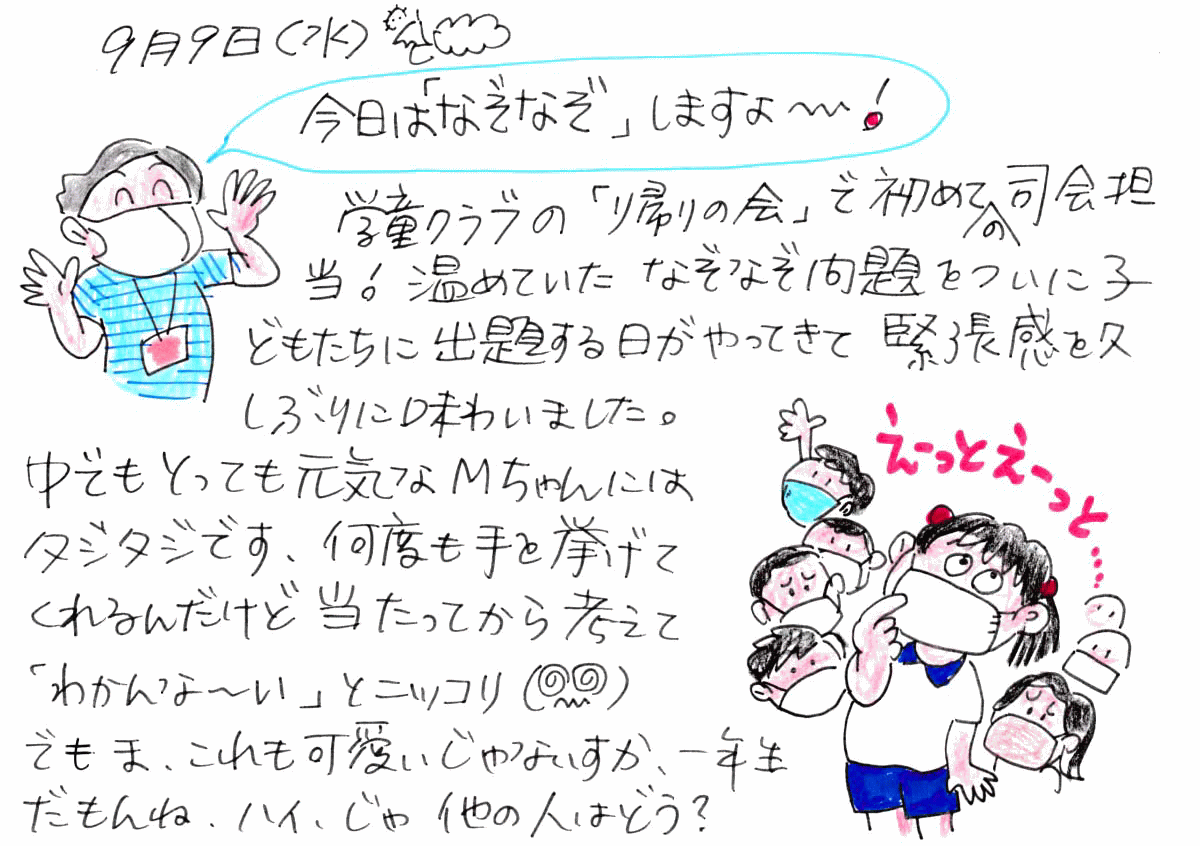 9月9日(水)
今日は「なぞなぞ」しますよ〜!
学童クラブの「り帰りの会」で初めての司会担
当!温めていたなぞなぞ問題をついに子
どもたちに出題する日がやってきて緊張感を久
しぶりに味わいました。
えーっとえーっと…
中でもとっても元気なMちゃんには
タジタジです、何度も手を挙げて
くれるんだけど当たってから考えて
「わかんな〜い」とニッコリ()
でもま、これも可愛いじゃないすか、一年生
だもんね、ハイ、じゃ他の人はどう?